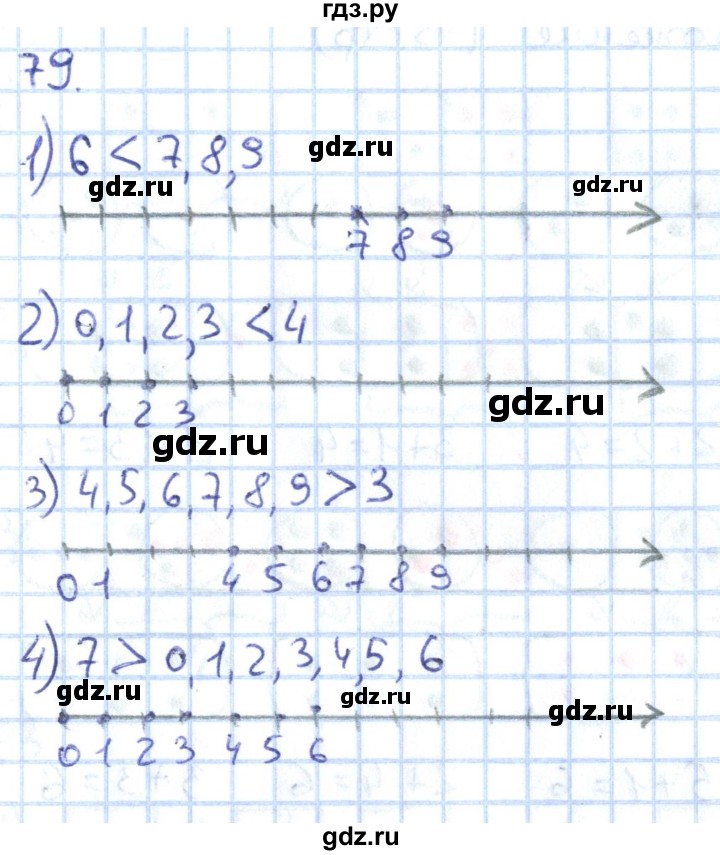 гдз.ру
79.
1) 6 < 7, 8, 9
gdz.ru
gdz.ru
gdz.ru
7 8 9
2) 0, 1, 2, 3 < 4
0 1 2 3
gdz.ru
gdz.ru
3) 4, 5, 6, 7, 8, 9 > 3
0 1 4 5 6 7 8 9
4) 7 > 0, 1, 2, 3, 4, 5, 6
gdz.ru
gdz.ru
gdz.ru
0 1 2 3 4 5 6
gdz.ru